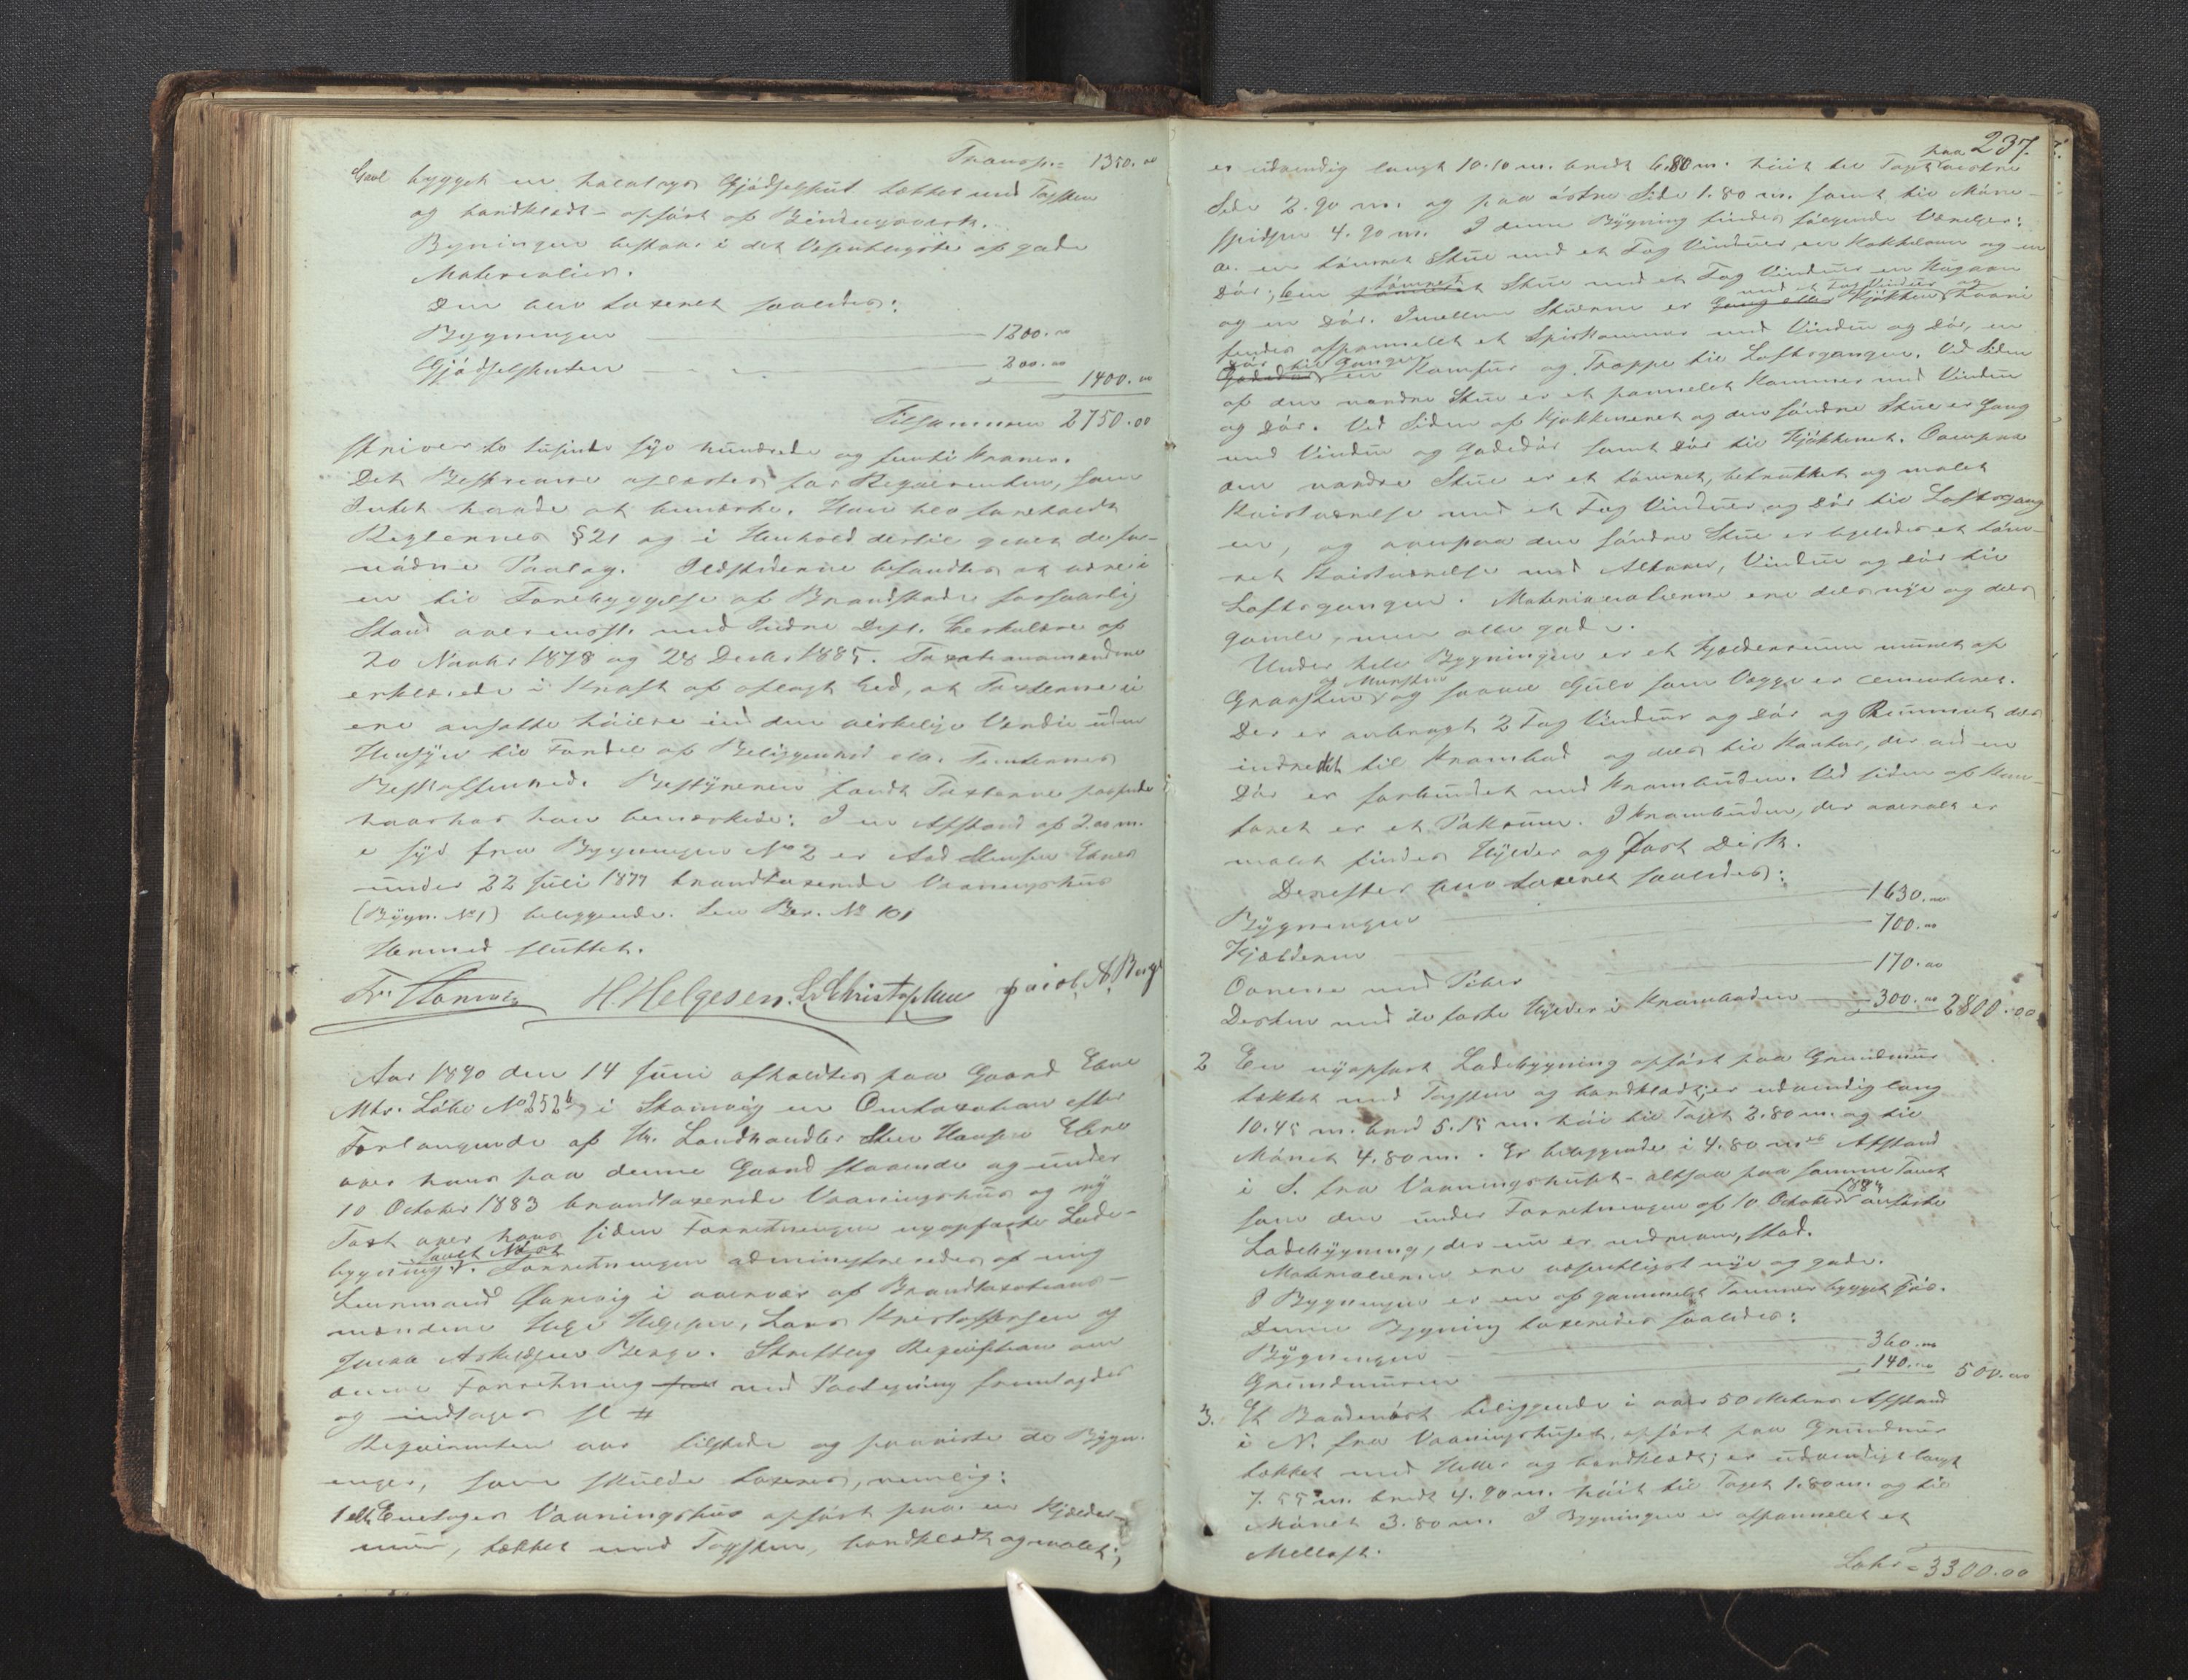 Transp. = 1350.00
Gavl bygget en halvtags Gjødselskut tækket med Tagsten
og bordklædt - opført af Bindingsværk.
Bygningen bestaar i det Væsentligste af gode
Materialier.
Den blev taxeret saaledes:
Bygningen 1200.00
Gjødselskuten 200.00
1400.00
Tilsammen 2750.00
skriver to tusinde syv hundrede og femti Kroner.
Det Beskrevne oplæstes for Reqvirenten, som
Intet havde at bemærke. Han blev foreholdt
Reglernes § 21 og i Henhold dertil givet de for-
nødne Paalæg. Ildstederne befandtes at være i
en til Forebyggelse af Brandskade forsvarlig
Stand overensst. med Indre Dept. Cirkulære af
20 Novbr 1878 og 28 Decbr 1885. Taxationsmændene
erklærede i Kraft af aflagt Eed, at Taxterne ei
ere ansatte høiere end den virkelige Værdi uden
Hensyn til Fordel af Beliggenhed ell. Tomternes
Beskaffenhed. Bestyreren fandt Taxterne passende
hvorhos han bemærkede: I en Afstand af 2.00 m.
i syd fra Bygningen No 2 er
under 22 Juli 1877 brandtaxerede Vaaningshus
(Bygn. No 1) beliggende. Lev Ber. No 101
Hermed sluttet.
H. Helgesen. L. Christophersen Jacob A. Berge
Aar 1890 den 14 Juni afholdtes paa Gaard Ebne
Mtr. Løbe No 252 b, i Stamvig en Omtaxation efter
Forlangende af Hr. Landhandler Sten Hansen Ebne
over hans paa denne Gaard staaende og under
10 October 1883 brandtaxerede Vaaningshus og ny
Taxt over hans siden Forretningen nyopførte Lade-
bygning samt Nøst. Forretningen administreredes af mig
Lensmand i Overvær af Brandtaxations-
mændene Helge Helgesen, Lars Kristoffersen og
Jacob Askildsen Berge. Skriftlig Reqvisition om
denne Forretning med Paategning fremlagdes
og indtages sl #
Reqvirenten var tilstede og paaviste de Bygn-
inger, som skulde taxeres, nemlig:
1 Et Enetages Vaaningshus opført paa en Kjelder-
mur, tækket med Tagsten, bordklædt og malet;
237.
er udvendig langt 10.10 m. bredt 6.80 m. høit til Taget paa vestre
Side 2.90 m. og paa østre Side 1.80 m. samt til Møne-
spidsen 4.90 m. I denne Bygning findes følgende Værelser:
a. en tømret Stue med et Fag Vinduer, en Kakkelovn og en
Dør; b en tømret Stue med et Fag Vinduer en Kogovn
og en Dør. Imellem Stuerne er Gang eller Kjøkken med et Fag Vinduer og hvori
findes afpannelet et Spiskammer med Vindu og Dør, en
Dør til Gangen en Komfur og Trappe til Loftsgangen. Ved Siden
af den nordre Stue er et pannelet Kammer med Vindu
og Dør. Ved Siden af Kjøkkenet og den søndre Stue er Gang
med Vindu og Gadedør samt Dør til Kjøkkenet. Ovenpaa
den nordre Stue er et tømret, betrukket og malet
Kvistværelse med et Fag Vinduer og Dør til Loftsgang
en, og ovenpaa den søndre Stue er ligeledes et tøm-
ret Kvistværelse med Alkover, Vindu og Dør til
Loftsgangen. Materialierne ere dels nye og dels
gamle, men alle gode.
Under hele Bygningen er et Kjelderrum muret af
Graasten og Mursten og saavel Gulv som Vægge er cementeret.
Der er anbragt 2 Fag Vinduer og Dør og Rummet dels
indredet til Krambod og dels til Kontor, der ved en
Dør er forbundet med Kramboden. Ved siden af Kon-
toret er et Pakrum. I Kramboden, der overalt er
malet findes Hylder og fast Disk.
Derefter blev taxeret saaledes:
Bygningen 1630.00
Kjelderen 700.00
Ovnene med Piber 170.00
Disken med de faste Hylder i Kramboden 300.00 2800.00
2 En nyopført Ladebygning opført paa Grundmur
tækket med Tagsten og bordklædt; er udvendig lang
10.45 m. bred 5.15 m. høi til Taget 2.80 m. og til
Mønet 4.80 m. Er beliggende i 4.80 m Afstand
i S. fra Vaaningshuset - altsaa paa samme Tomt
som den under Forretningen af 10 October 1883 anførte
Ladebygning, der nu er nedreven, stod.
Materialierne ere væsentligst nye og gode.
I Bygningen er en af gammelt Tømmer bygget Fjøs.
Denne Bygning taxeredes saaledes:
Bygningen 360.00
Grundmuren 140.00 500.00
3. Et Baadenøst beliggende i over 50 Meters Afstand
i N. fra Vaaningshuset, opført paa Grundmur
tækket med Heller og bordklædt; er udvendigt langt
7.55 m. bredt 4.90 m. høit til Taget 1.80 m. og til
Mønet 3.80 m. I Bygningen er afpannelet et
Melloft.
Latus = 3300.00